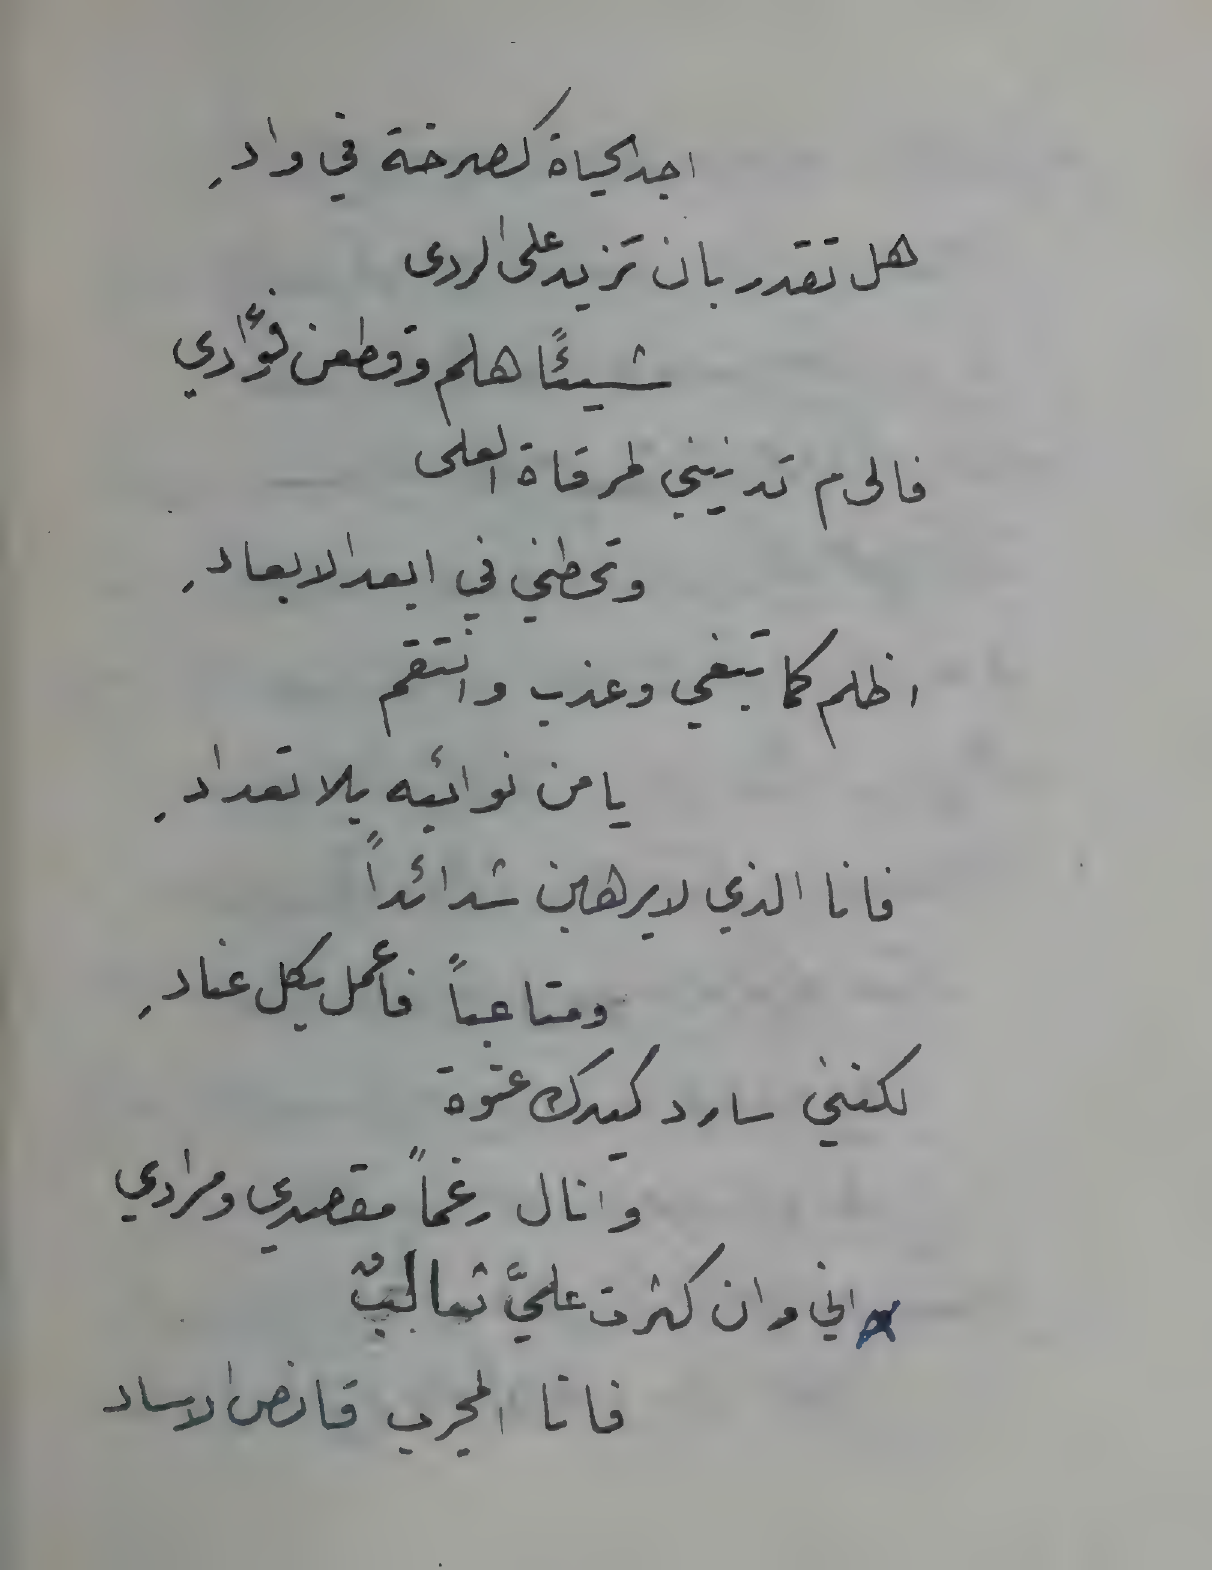 اجد الحياة كصرخة في وادِ
هل تقدر بان تزيد على الردى
شيئًا هلم وقطعن فؤادي
فالى م تدنيني لمرقاة العلى
وتحطني في ابعد الابعادِ
اظلم كما تبغي وعذب وانتقم
يا من نوائبه بلا تعدادِ
فانا الذي لا يرهبن شدائداً
ومتاعباً فاعمل بكل عنادِ
لكنني سارد كيدك عنوة
وانال رغماً مقصدي ومرادي
اني وان كثرت عليَّ ثعالبٌ
فانا المجرب قانص الاساد